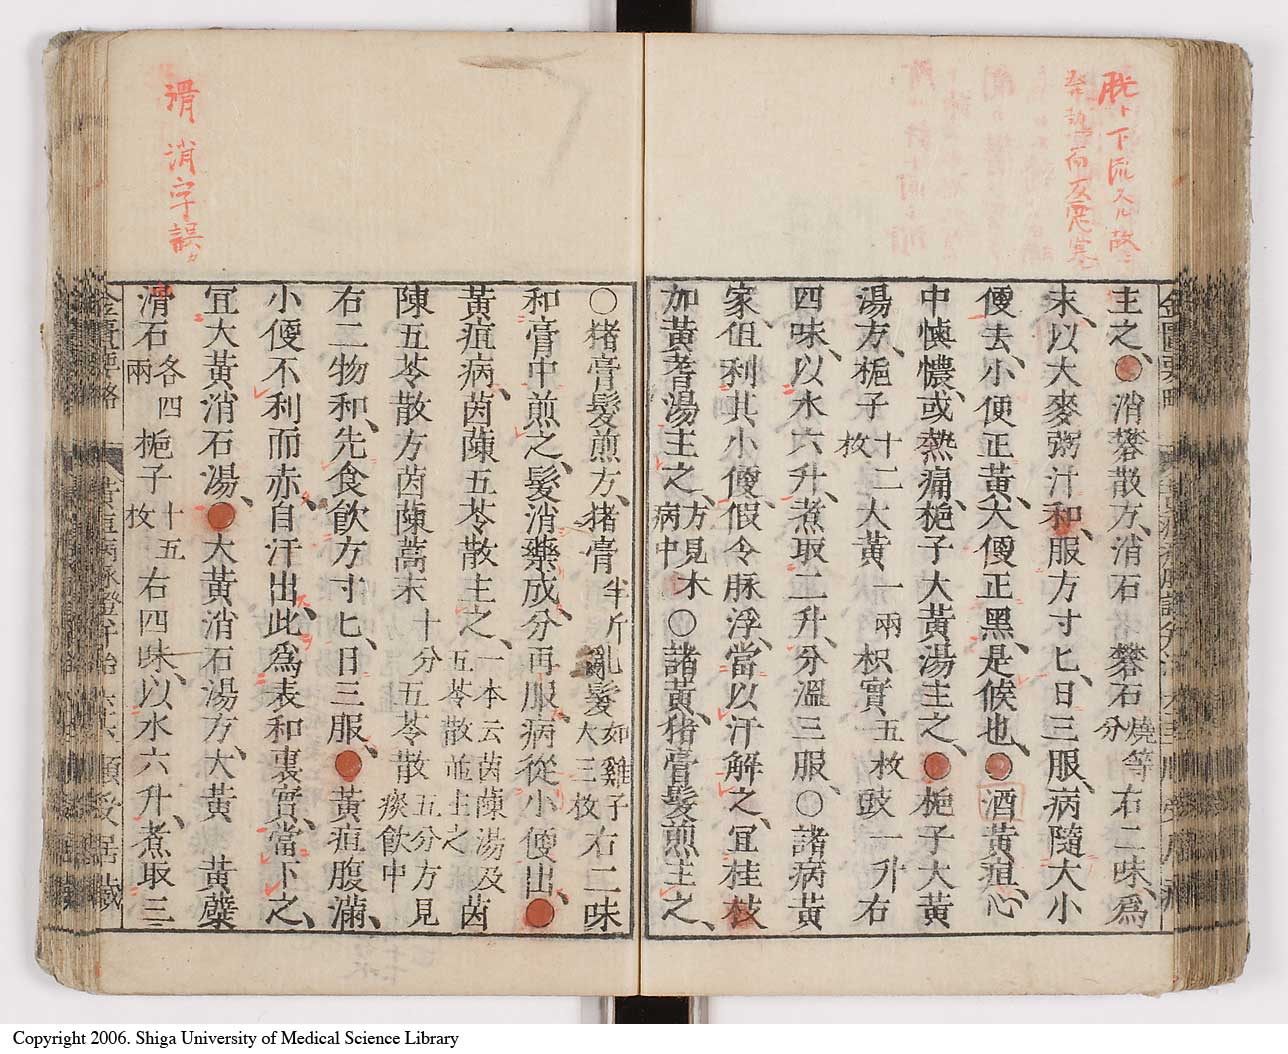 主之、●消礬散方、消石 礬石燒等分右二味、爲
末、以大麥粥汁和、服方寸匕、日三服、病隨大小
便去、小便正黃、大便正黑、是候也、●酒黃疸、心
中懊憹、或熱痛、梔子大黃湯主之、●梔子大黃
湯方、梔子十二枚大黃一兩枳實五枚豉一升右
四味、以水六升、煮取二升、分溫三服、〇諸病黃
家、但利其小便、假令脉浮、當以汗解之、冝桂枝
加黃耆湯主之、方見水病中〇諸黃、猪膏髮煎主之、
〇猪膏髮煎方、猪膏半斤亂髮如雞子大三枚右二味
和膏中煎之、髮消藥成、分再服、病從小便出、●
黃疸病、茵蔯五苓散主之、一本云茵蔯湯及五苓散並主之茵
蔯五苓散方茵蔯蒿末十分五苓散五分方見痰飮中
右二物和、先食飮方寸匕、日三服、●黃疸腹滿、
小便不利而赤、自汗出、此爲表和裏實、當下之、
冝大黃消石湯、●大黃消石湯方、大黃 黃蘗
滑石各四兩梔子十五枚右四味、以水六升、煮取三
滑消字誤カ
Copyright 2006. Shiga University of Medical Science Library